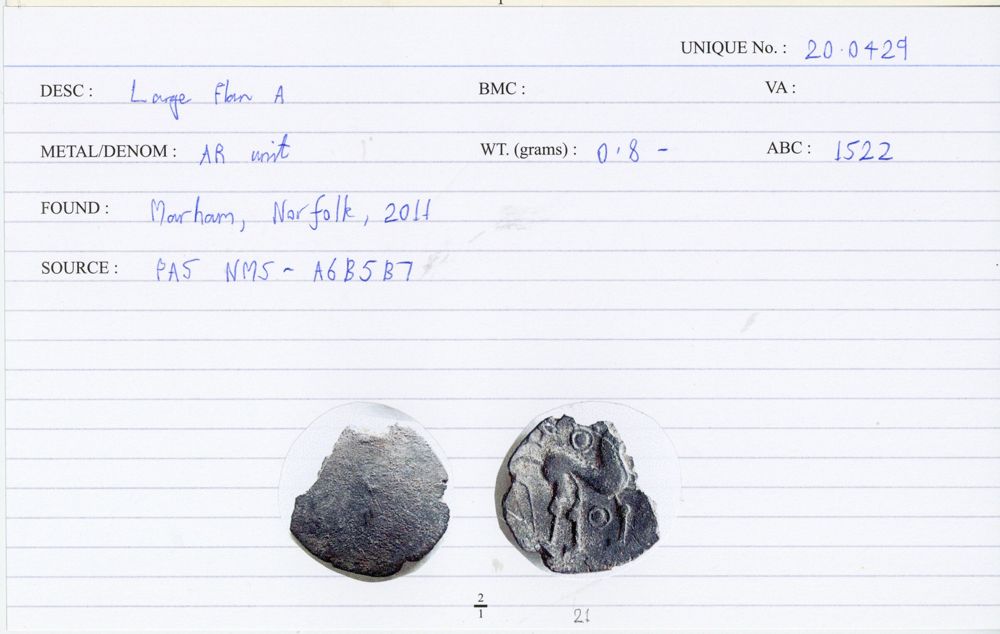 UNIQUE No. : 20.0429
DESC : Large Flan A BMC : VA :
METAL/DENOM : AR unit WT. (grams) : 0.8 - ABC : 1522
FOUND : Marham, Norfolk, 2011
SOURCE : PAS NMS - A6B5B7
2
1
21